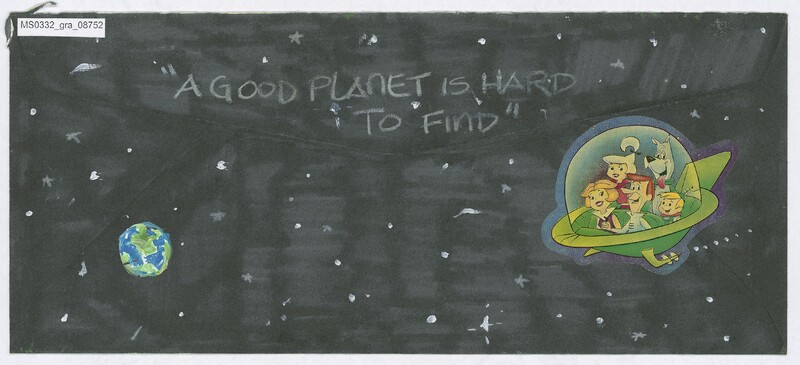 MS0332_gra_08752
"A GOOD PLANET IS HARD
TO FIND"